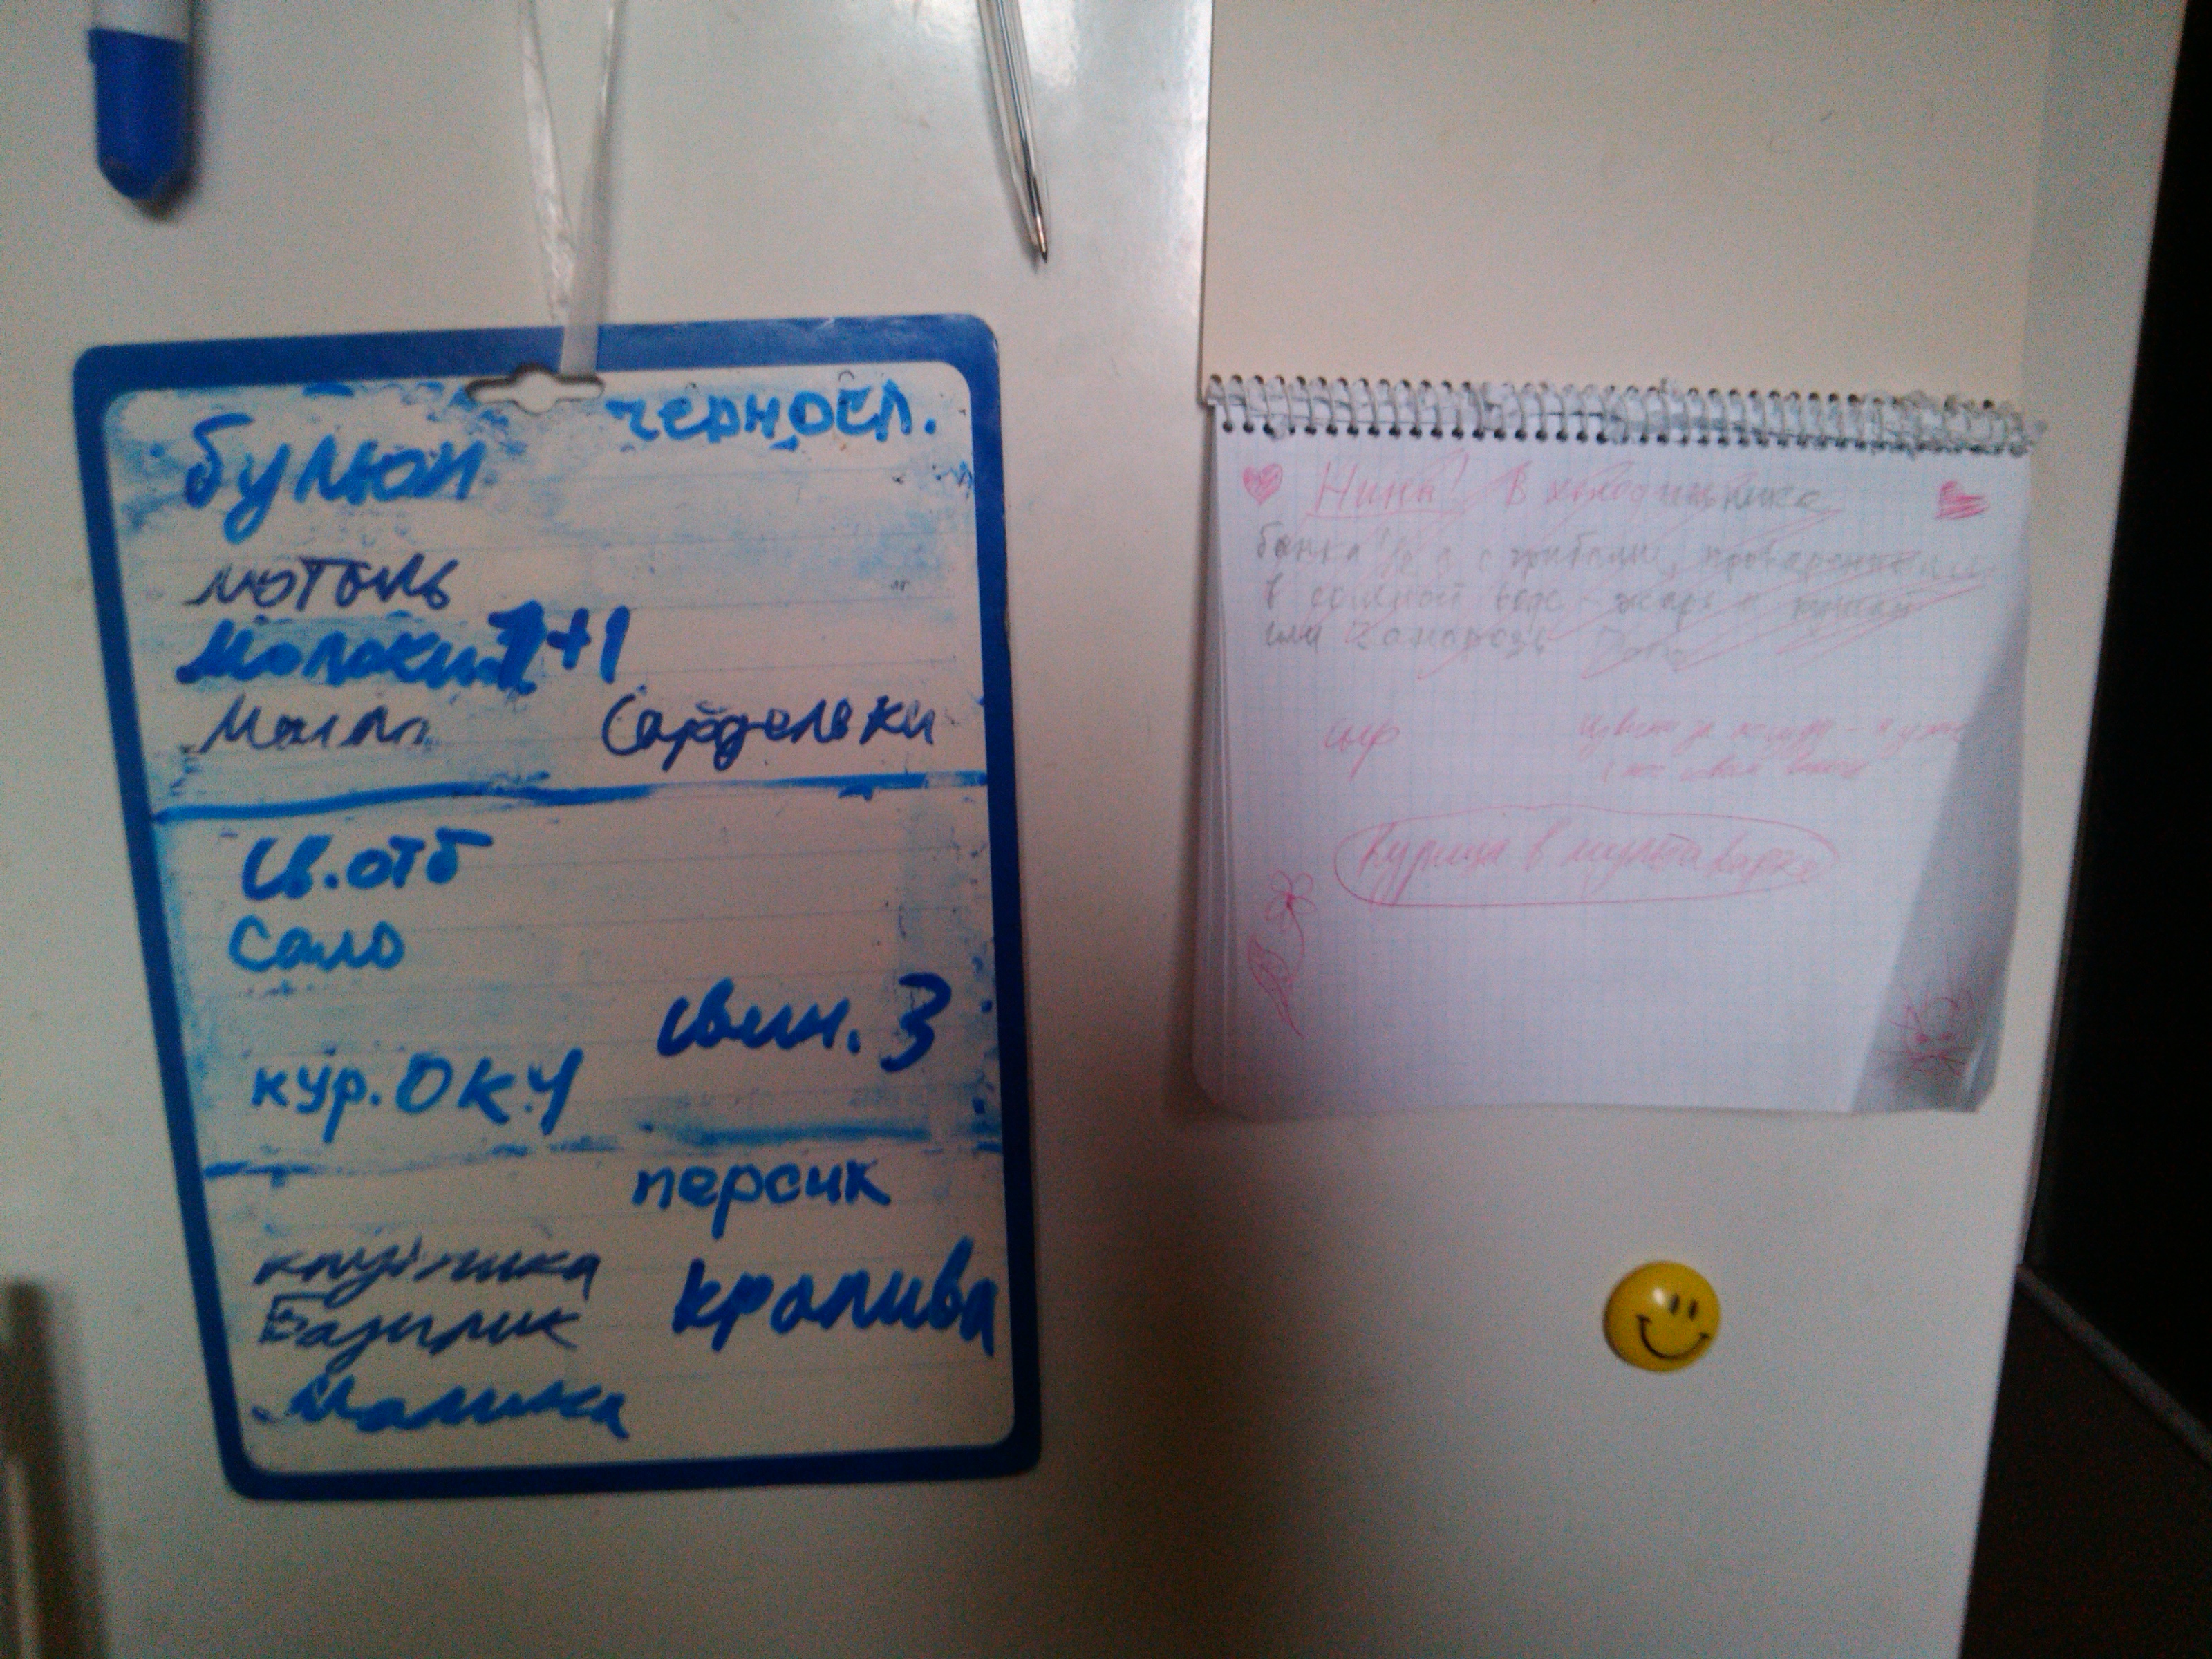 черносл.
бульон
мотыль
Молоки 1+1
Масло Сардельки
Св. отб
Сало
свин. 3
кур. ОК.Ч
персик
клубника
Базилик крапива
Малина
Нина! В холодильнике
банка 1/2 л с грибами, проваренными
в соленой воде - жарь и кушай
или заморозь
сыр
Курица в мультиварке